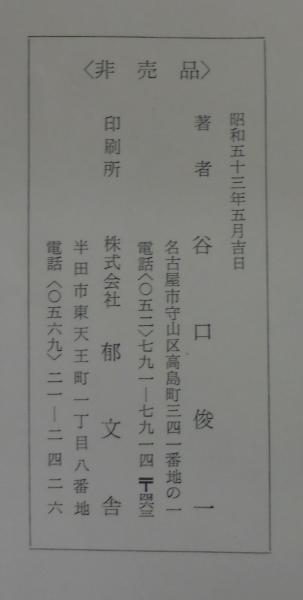 〈非売品〉
昭和五十三年五月吉日
著者 谷口俊一
名古屋市守山区高島町三四一番地の一
電話〈〇五二〉七九一―七九一四 〒
印刷所 株式会社 郁文舎
半田市東天王町一丁目八番地
電話〈〇五六九〉二一―二四二六